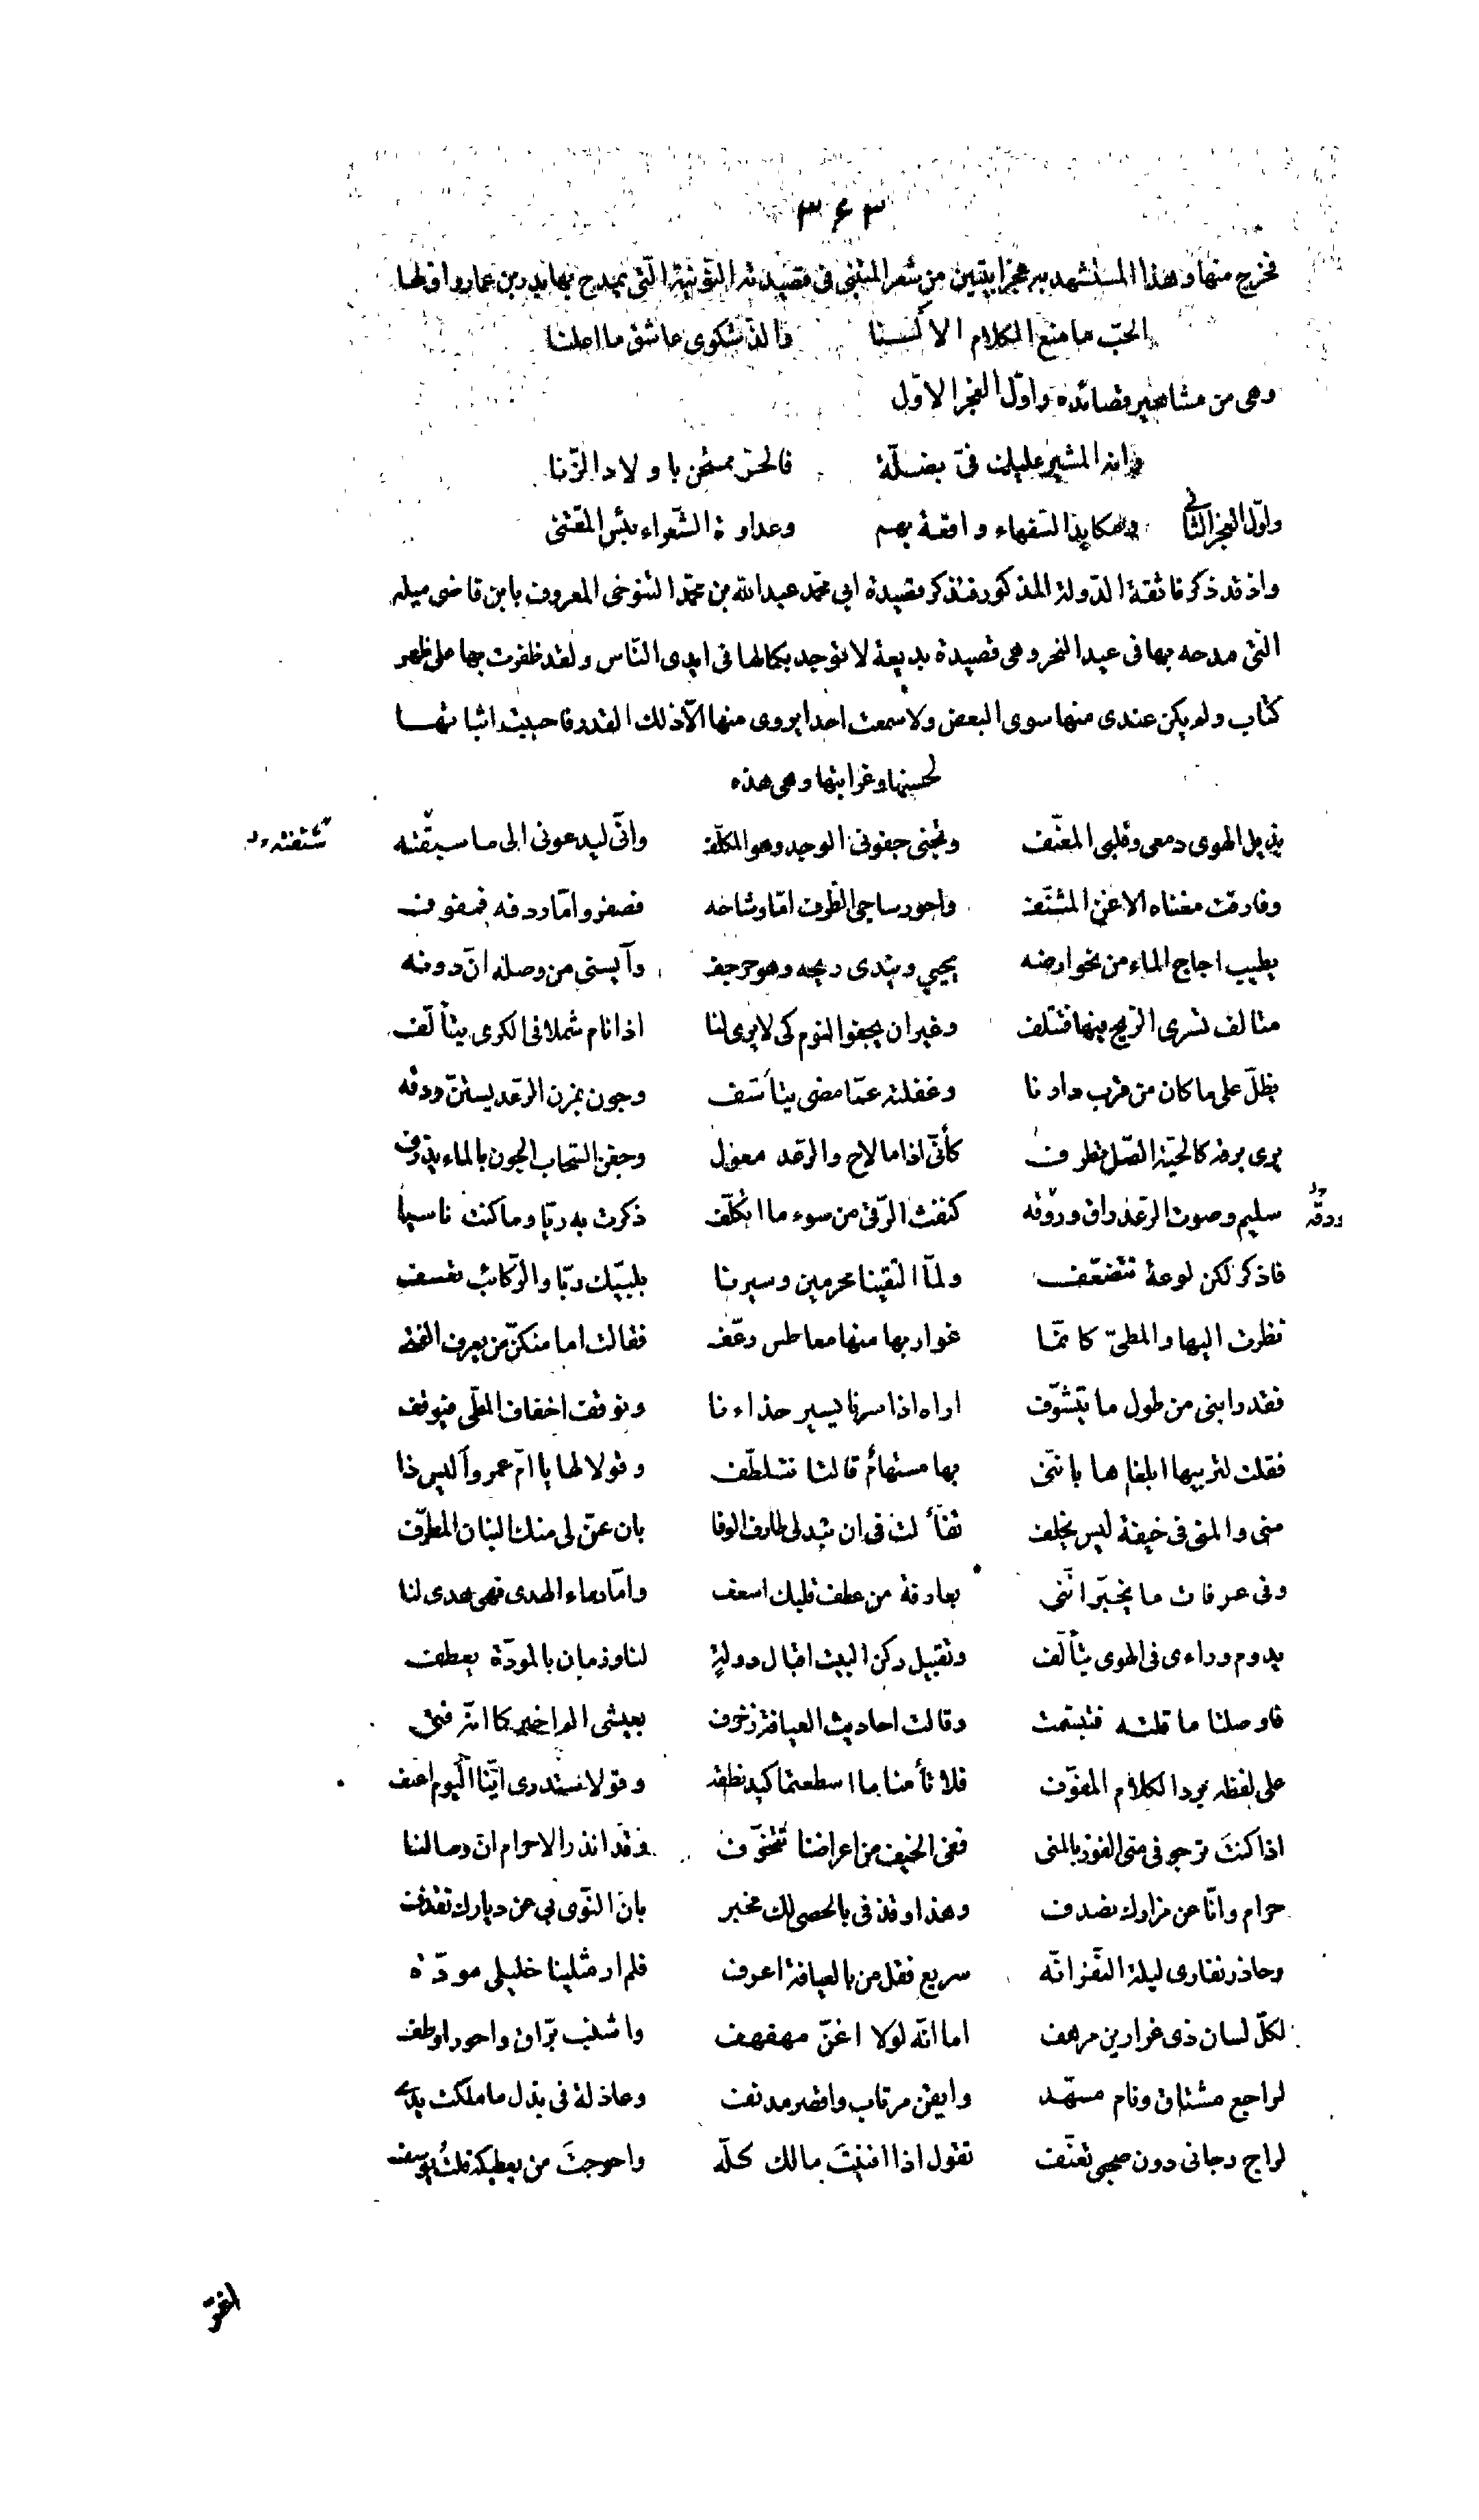 ٣٤٣
فخرج منها وهذا المستشهد به عجزا بيتين من شعر المتنبي فى قصيدته النّونيّة الّتى يمدح بها بدر بن عمار واوّلها
الحبّ ما منع الكلام الالسنا والذّ شكوى عاشق ما اعلنا
وهى من مشاهير قصائده واوّل العجز الاوّل
وانه المشير عليك فىّ بضلّة فالحرّ ممتحن باولاد الزّنا
واوّل العجز الثانى ومكايد السّفهاء واقعة بهم وعداوة الشّعراء بئس المقتنى
واذ قد ذكرنا ثقة الدّولة المذكور فنذكر قصيدة ابى محمّد عبد الله بن محمّد التنوخى المعروف بابن قاضى ميله
الّتى مدحه بها فى عيد النحر وهى قصيدة بديعة لا توجد بكمالها فى ايدى النّاس ولقد ظفرت بها على ظهر
كتاب ولم يكن عندى منها سوى البعض ولا سمعت احدا يروى منها الّا ذلك القدر فاحببت اثباتها
لحسنها وغرابتها وهى هذه
يذيل الهوى دمعى وقلبى المعنّف وتجنى جفونى الوجد وهو المكلّف وانّى ليدعونى الى ما سبقته
وفارقت مغناه الاغنّ المشنّف واحور ساجى الطرف امّا وشاحه فصفر وامّا ردفه فمفوف
يطيب اجاج الماء من نحو ارضه يحيى ويندى ريحه وهو حرجف وآيسنى من وصله انّ دونه
متالف تسرى الرّيح بينها فتتلف وغيران يجفو النوم كى لا يرى لنا اذا نام شملا فى الكرى يتألّف
يظلّ على ما كان من قرب دارنا وغفلته عمّا مضى يتأسّف وجون بمزن الرّعد يستنّ ودقه
يرى برقه كالحيّة الصّلّ تطرف كأنّى اذا ما لاح والرّعد معول وجفن السّحاب الجون بالماء يذرف
سليم وصوت الرّعد راق وودقه كنفث الرّقى من سوء ما اتكلّف ذكرت به ريّا وما كنت ناسيا
فاذكر لكن لوعة تتضعّف ولمّا التقينا محرمين وسيرنا بلبّيك ربّا والرّكائب تعسف
نظرت اليها والمطىّ كانّما غواربها منها معاطس رعّف فقالت اما منكنّ من يعرف الفتى
فقد رابنى من طول ما يتشوّف اراه اذا سرنا يسير حذاءنا ونوقف اخفاف المطى فيوقف
فقلت لتربيها ابلغاها باننّى بها مستهام قالتا نتلطّف وقولا لها يا امّ عمرو أليس ذا
منى والمنى فى خيفة ليس يخلف تفألت فى ان تبدلى طارف الوفا بان عنّ لى منك البنان المطرّف
وفى عرفات ما يخبّر انّنى بعارفة من عطف قلبك اسعف وامّا دماء الهدى فهى هدى لنا
يدوم وراءى فى الهوى يتألّف وتقبيل ركن البيت اقبال دولةٍ لنا وزمان بالمودّة يعطف
فاوصلتا ما قلته فتبسّمت وقالت احاديث العيافة زخرف بعيشى الم اخبركما انّه فتى
على لفظه برد الكلام المفوّف فلا تأمنا ما اسطعتما كيد نطقه وقولا ستدرى ايّنا اليوم اعيف
اذا كنتَ ترجو فى منى الفوز بالمنى ففى الخيف من اعراضنا تتخوّف وقد انذر الاحرام انّ وصالنا
حرام وانّا عن مزارك نصدف وهذا وقذفى بالحصى لك مخبر بانّ النّوى بى عن ديارك تقذف
وحاذر نفارى ليلة النّفر انّه سريع فقل من بالعيافة اعرف فلم ار مثلينا خليلى مودّة
لكلّ لسان ذى غرارين مرهف اما انّه لولا اغنّ مهفهف واشنب برّاق واحور اوطف
لراجع مشتاق ونام مسهّد وايقن مرتاب واقصر مدنف وعاذلة فى بذل ما ملكت يدى
لراج رجانى دون صحبى تعنّف تقول اذا افنيتَ مالك كلّه واحوجتَ من يعطيكه قلتُ يوسف